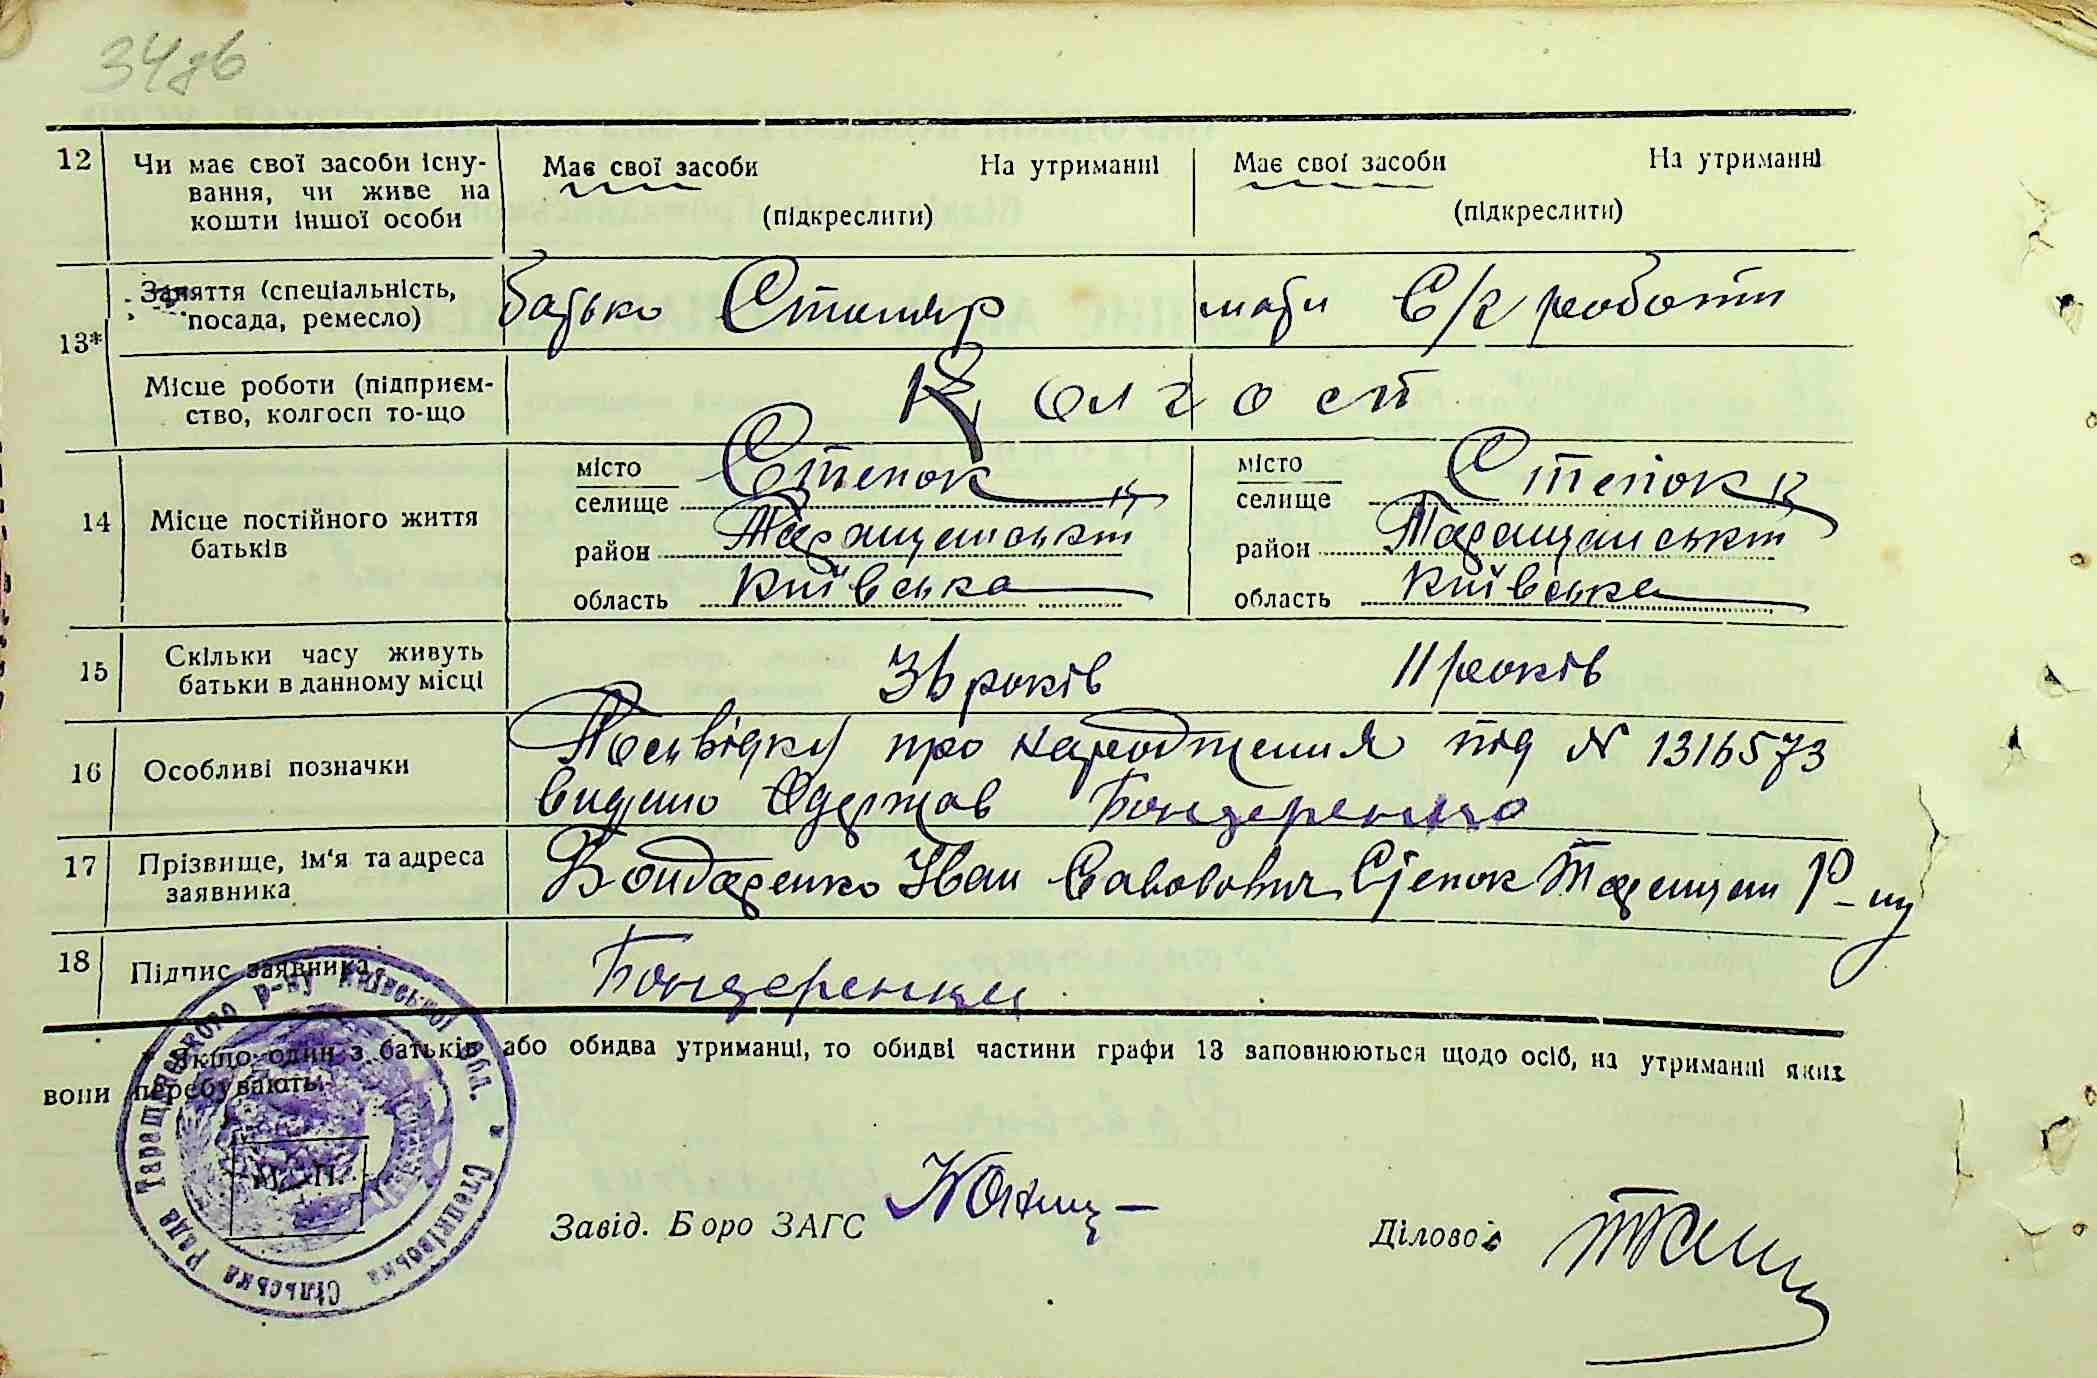 34зв
12 Чи має свої засоби існу- Має свої засоби На утриманні Має свої засоби На утриманні
вання, чи живе на
кошти іншої особи (підкреслити) (підкреслити)
13* Заняття (спеціальність, батько Столяр мати С/г роботи
посада, ремесло)
Місце роботи (підприєм- Колгосп
ство, колгосп то-що
14 Місце постійного життя батьків
місто селище Степок місто селище Степок
район Таращанський район Таращанський
область Київська область Київська
15 Скільки часу живуть 36 років 11 років
батьки в данному місці
16 Особливі позначки Посвідку про народження під № 1316573
видано Одержав Бондаренко
17 Прізвище, ім'я та адреса Бондаренко Іван Савович Степок Таращан Р-ну
заявника
18 Підпис заявника Бондаренко
* Якщо один з батьків або обидва утриманці, то обидві частини графи 13 заповнюються щодо осіб, на утриманні яких
вони перебувають.
Степківська Сільська Рада Таращанського р-ну Київської обл.
М. П.
Завід. Боро ЗАГС Діловод